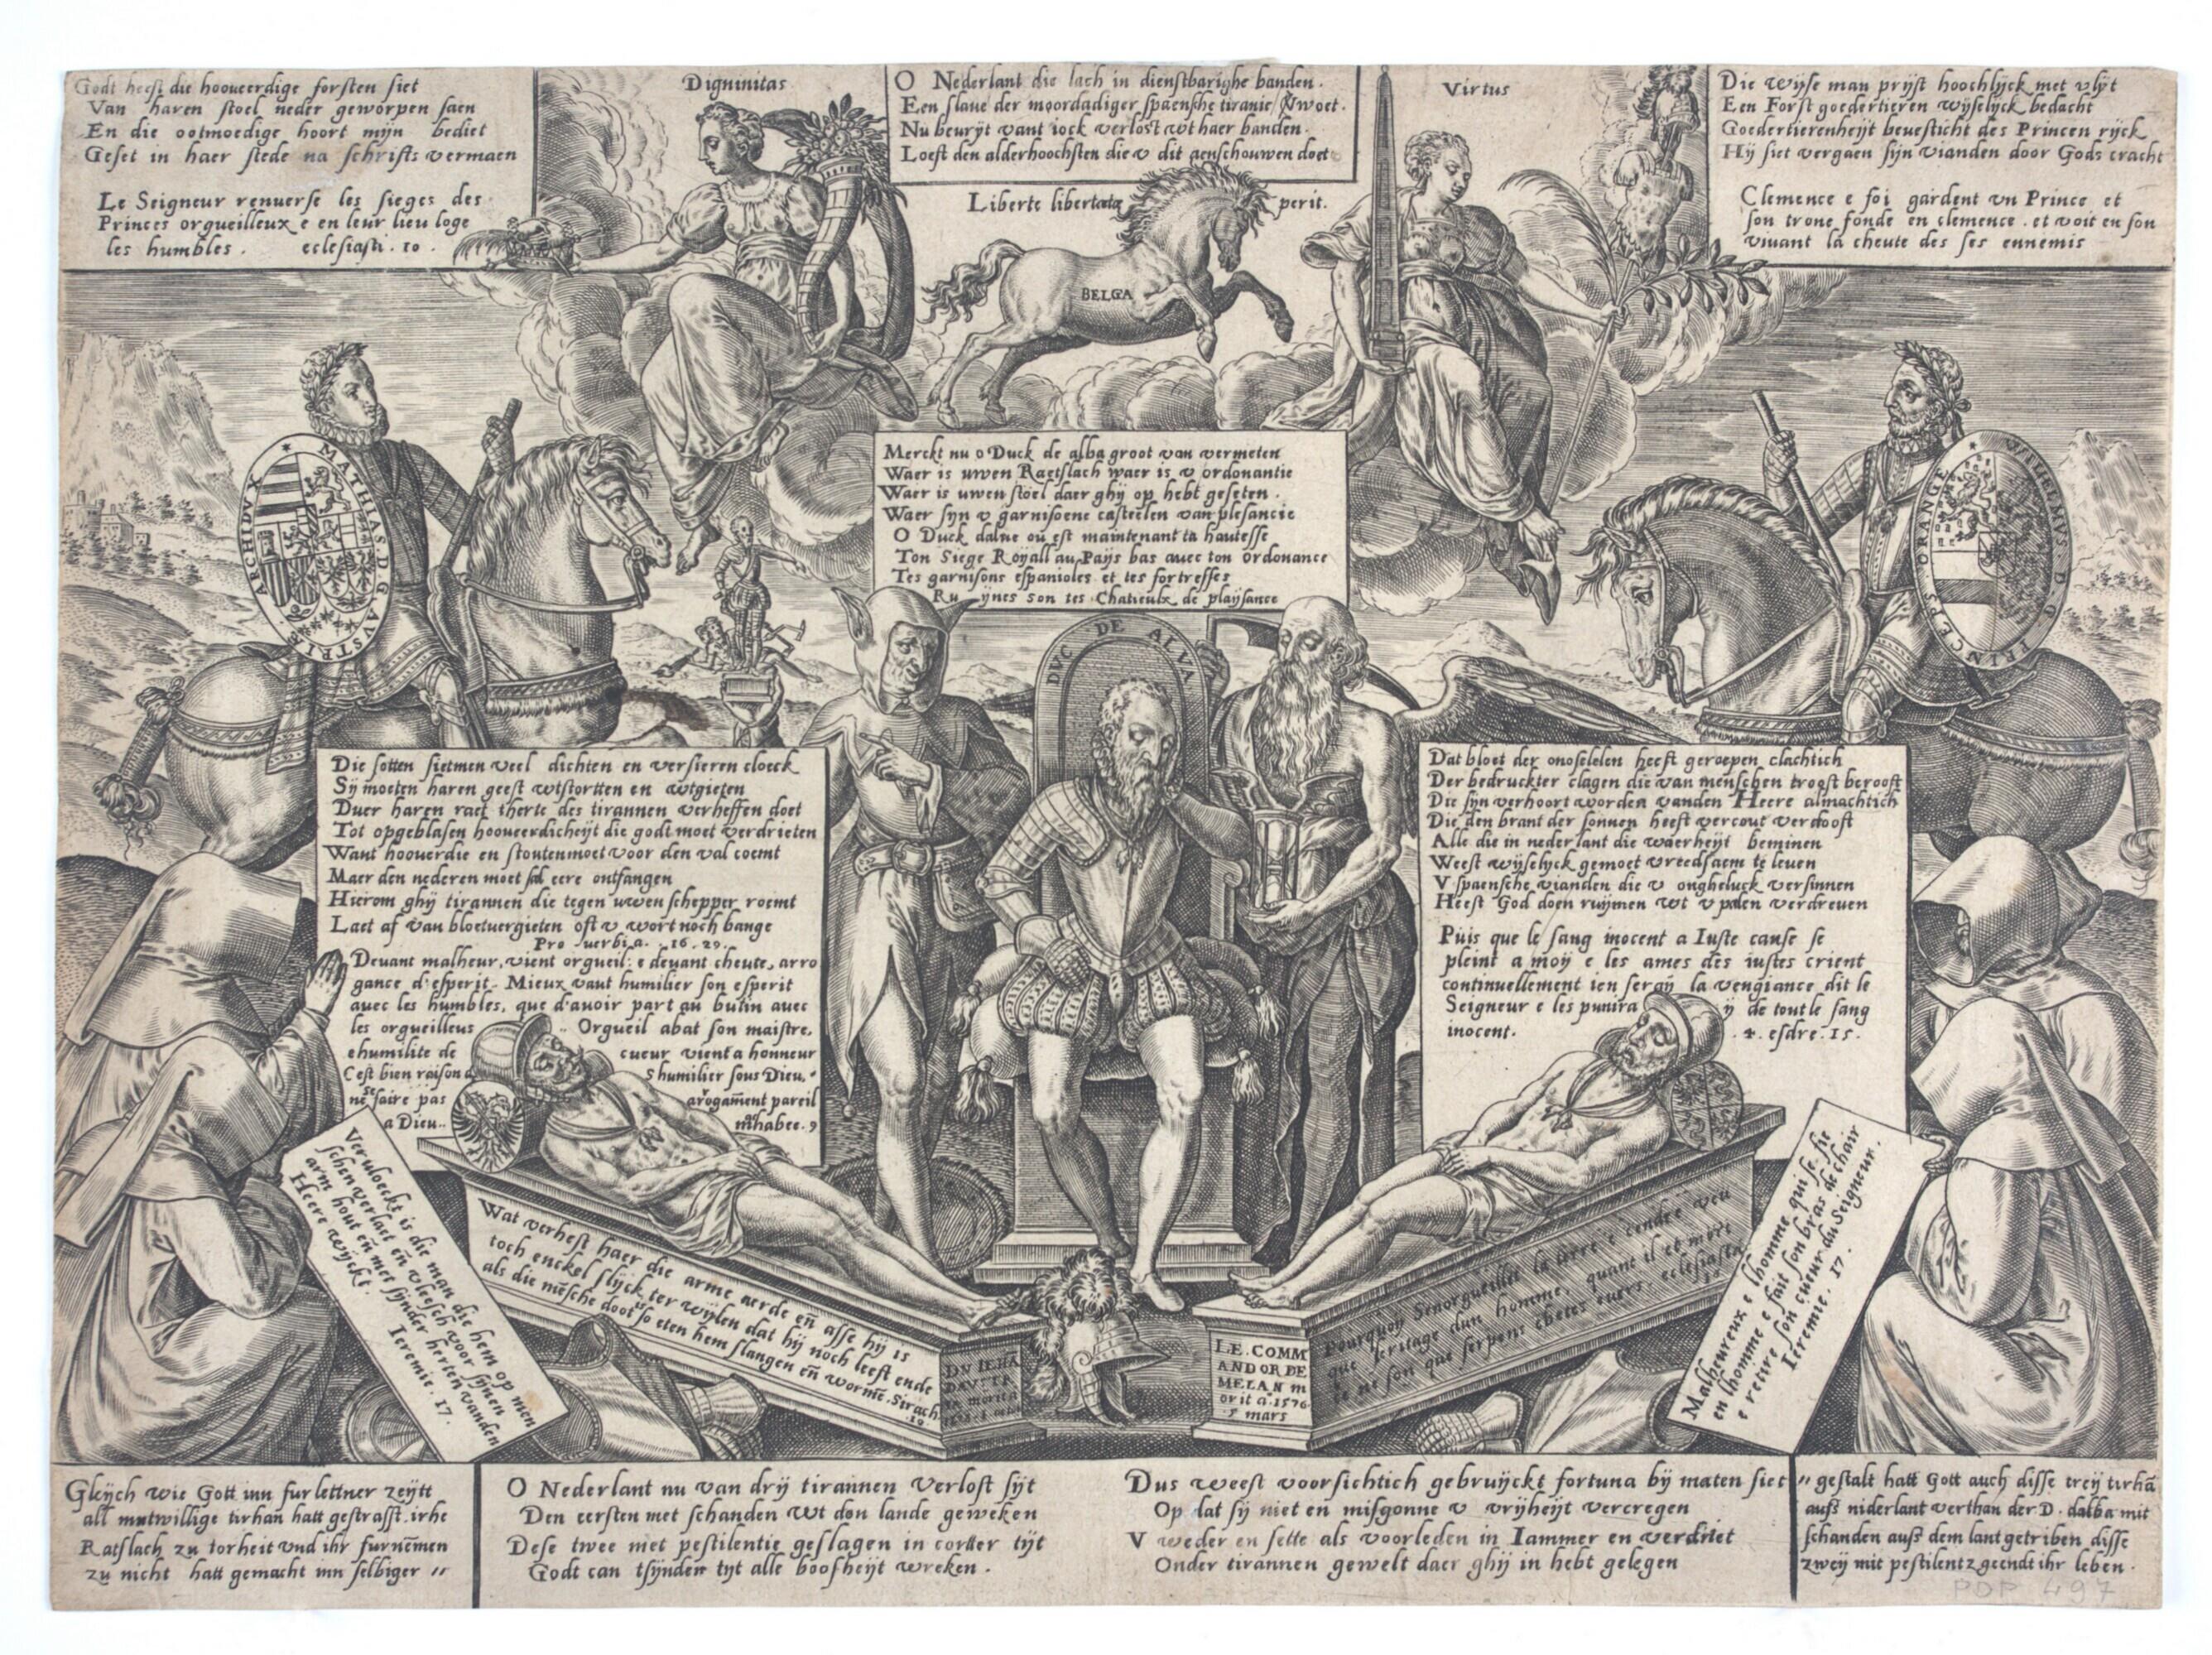 Godt heeft die hooveerdige forsten siet
Van haren stoel neder geworpen saen
En die ootmoedige hoort mijn bediet
Geset in haer stede na schrifts vermaen
Le Seigneur renuerse les sieges des
Princes orgueilleux e en leur lieu loge
les humbles. eclesiasti. 10.
Digninitas
O Nederlant die lach in dienstbarighe banden.
Een slave der moordadiger spaensche tiranie
Nu bevrijt vant iock verlost wt haer banden.
Loeft den alderhoochsten die v dit aenschouwen doet
Liberte libertata perit.
BELGA
Virtus
Die wijse man prijst hoochlijck met vlijt
Een Forst goedertieren wijselijck bedacht
Goedertierenheijt bevesticht des Princen rijck
Hij siet vergaen sijn vianden door Gods cracht
Clemence e foi gardent vn Prince et
son trone fonde en clemence. et voit en son
vivant la cheute des ses ennemis
ARCHIDVX MATHIAS D G AVSTRI
WILHELMVS D G PRINCEPS ORANGE
Merckt nu o Duck de alba groot van vermeten
Waer is uwen Raetslach waer is v ordonantie
Waer is uwen stoel daer ghij op hebt geseten.
Waer sijn v garnisoene casteelen van plesancie
O Duck dalve ou est maintenant ta hautesse
Ton Siege Royall au Paijs bas avec ton ordonance
Tes garnisons espanioles et tes fortresses
Ru ynes son tes Chateulx de plaijsance
DVC DE ALVA
Die sotten sietmen veel dichten en versieren cloeck
Sij moeten haren geest wtstortten en wtgieten
Duer haren raet therte des tirannen verheffen doet
Tot opgeblasen hooveerdicheijt die godt moet verdrieten
Want hooverdie en stoutenmoet voor den val coemt
Maer den nederen moet sal eere ontfangen
Hierom ghij tirannen die tegen uwen schepper roemt
Laet af van bloetvergieten oft v wort noch bange
Pro verbia. 16. 29.
Devant malheur, vient orgueil: e devant cheute, arro
gance d'esperit. Mieux vaut humilier son esperit
avec les humbles, que d'avoir part au butin avec
les orgueilleus .. Orgueil abat son maistre,
e humilite de cueur vient a honneur
C'est bien raison d S humilier sous Dieu,
ne se faire pas arogament pareil
a Dieu..
Dat bloet der onoselelen heeft geroepen clachtich
Der bedruckter clagen die van menschen troost berooft
Die sijn verhoort worden vanden Heere almachtich
Die den brant der sonnen heeft vercout verdooft
Alle die in nederlant die waerheijt beminen
Weest wijselijck gemoet vreedsaem te leven
V spaensche vianden die v ongheluck versinnen
Heeft God doen ruijmen wt v palen verdreven
Puis que le sang inocent a Iuste cause se
pleint a moij e les ames des iustes crient
continuellement ien feray la vengiance dit le
Seigneur e les punira y de tout le sang
inocent. 4. esdre. 15.
Vervloeckt is die man die hem op men
schen verlaet en vleesch voor sijnen
arm hout en met sijnder herten vanden
Heere wijckt. Ieremie. 17.
Wat verheft haer die arme aerde en asse hij is
toch enckel slijck ter wijlen dat hij noch leeft ende
als die mesche doot is so eten hem slangen en worme. Sirach
.10.
LE. COMM
ANDOR DE
MELAN m
orit a. 1576.
5 mars
Pourquoy Senorgueillit la terre e cendre veu
que leritage dun homme, quant il et mort
te ne son que serpens ebetes euers. eclesiasti
Malheureux e lhomme qui se fie
en lhomme e fait son bras de chair
e retire son cueur du Seigneur.
Ieremie. 17.
Gleijch wie Gott inn fur lettner zeijtt
all mutwillige tirhan hatt gestrafft. irhe
Ratslach zu torheit vnd ihr furnemen
zu nicht hatt gemacht inn selbiger "
O Nederlant nu van drij tirannen verlost sijt
Den eersten met schanden wt don lande geweken
Dese twee met pestilentie geslagen in corter tijt
Godt can tsijnder tyt alle boosheijt wreken.
Dus weest voorsichtich gebruijckt fortuna bij maten siet
Op dat sij niet en misgonne v vrijheijt vercregen
V weder en sette als voorleden in Iammer en verdriet
Onder tirannen gewelt daer ghij in hebt gelegen
" gestalt hatt Gott auch disse treij tirha
aufs niderlant verthan der D. dalba mit
schanden auss dem lant getriben disse
zweij mit pestilentz geendt ihr leben.
PDP 497